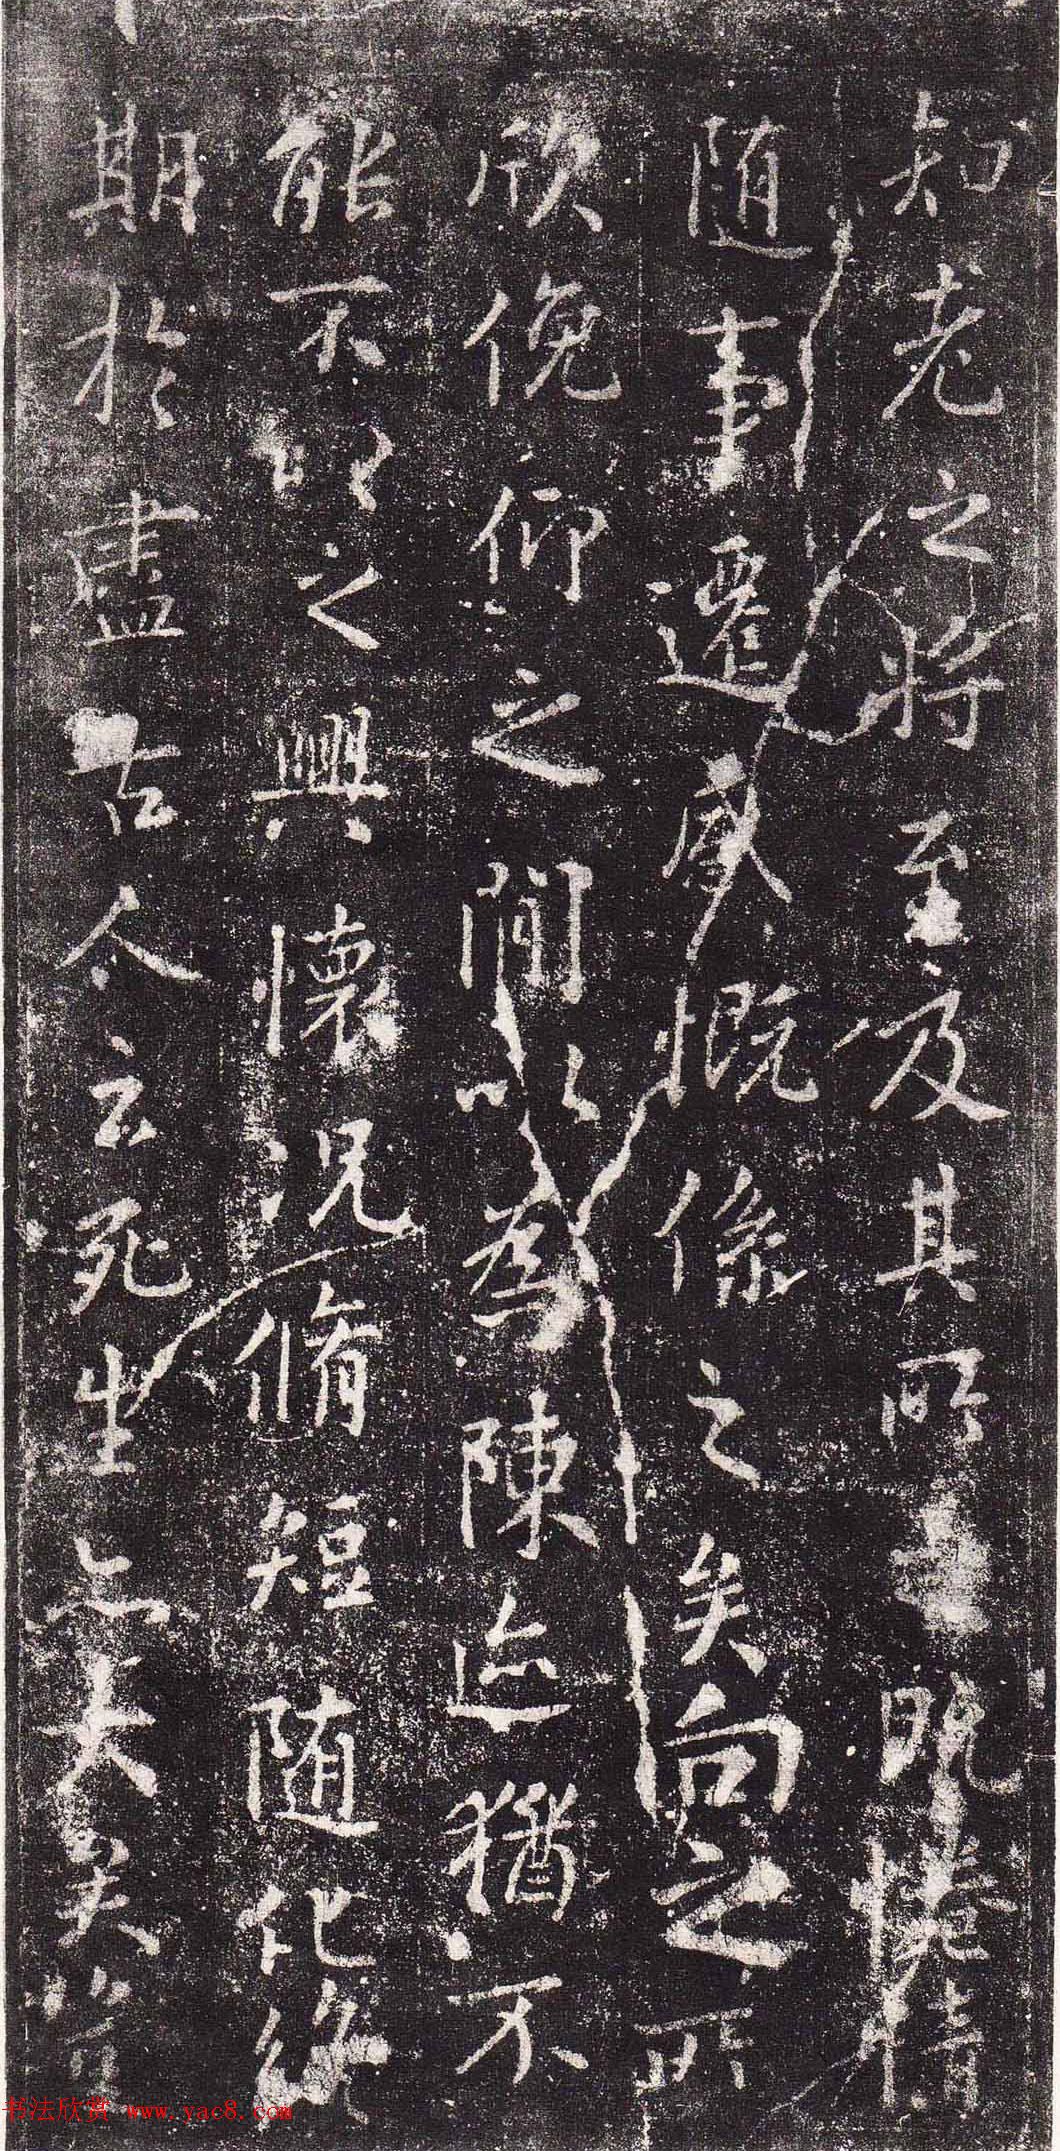 知老之將至及其所之既惓情
随事遷感慨係之矣向之所
欣俛仰之間以為陳迹猶不
能不以之興懷況脩短随化終
期於盡古人云死生亦大矣豈
书法欣赏 www.yac8.com